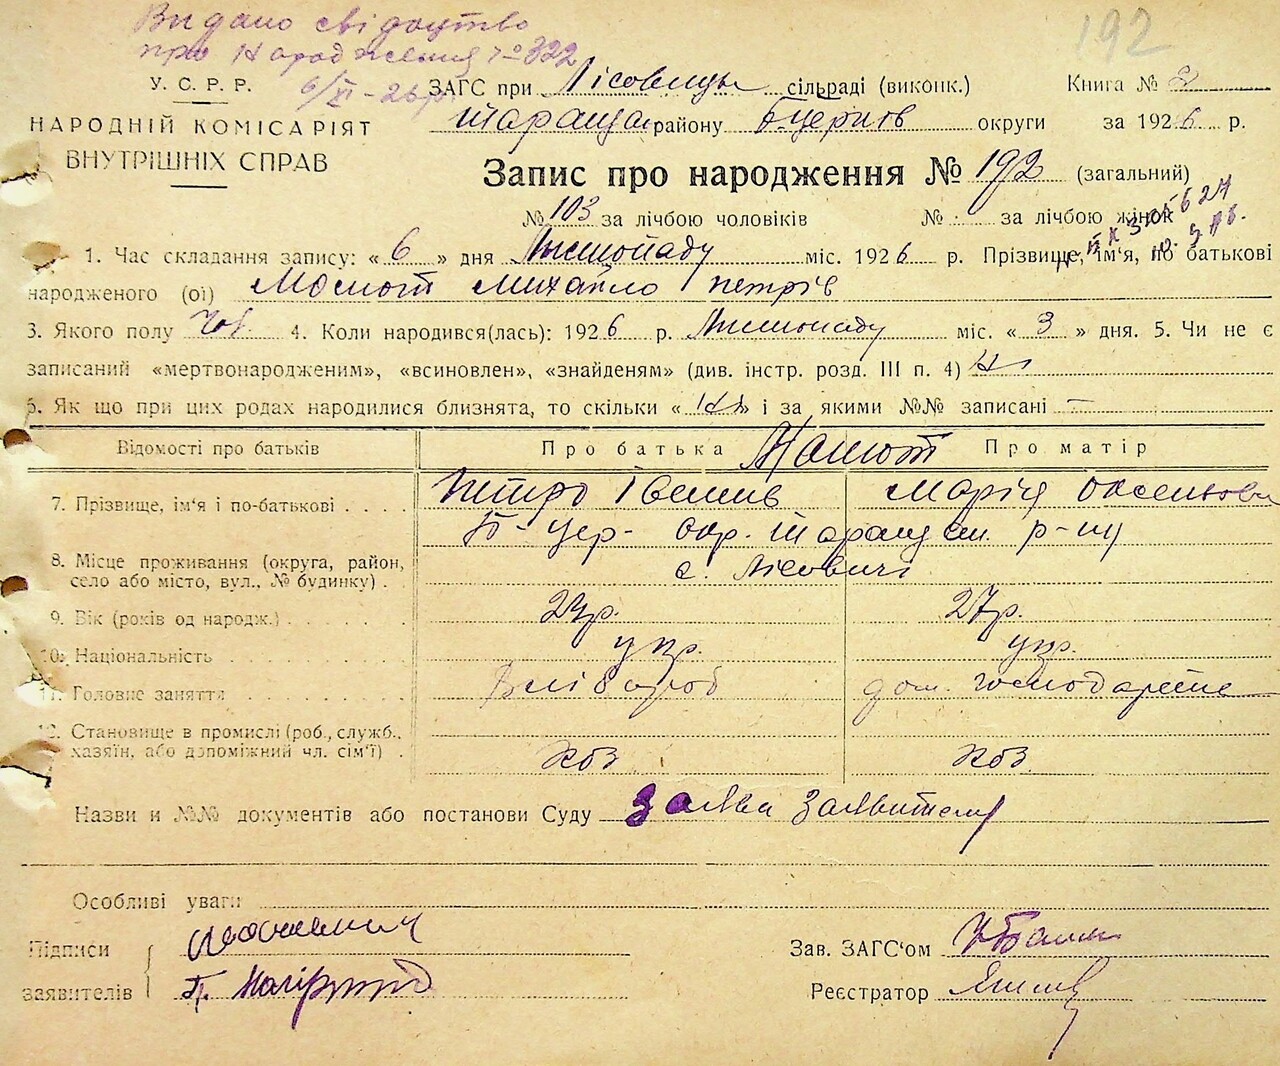 Видано свідоцтво
про Народження № 322
6/XI-26 р.
192
У. С. Р. Р.
НАРОДНІЙ КОМІСАРІЯТ
ВНУТРІШНІХ СПРАВ
ЗАГС при Лісовицьк сільраді (виконк.) Книга № 2
Таращан району Б.церків округи за 1926 р.
Запис про народження № 192 (загальний)
№ 103 за лічбою чоловіків № за лічбою жінок
1. Час складання запису: « 6 » дня Листопаду міс. 1926 р. Прізвище, ім'я, по батькові
народженого (ої) Михайло Петрів
3. Якого полу чол. 4. Коли народився(лась): 1926 р. Листопаду міс. « 3 » дня. 5. Чи не є
записаний «мертвонародженим», «всиновлен», «знайденям» (див. інстр. розд. III п. 4) Ні
6. Як що при цих родах народилися близнята, то скільки « Ні » і за якими №№ записані –
Відомості про батьків Про батька Про матір
7. Прізвище, ім'я і по-батькові Петро Марія
Б-Цер- Окр. Таращан. р-ну
8. Місце проживання (округа, район, село або місто, вул., № будинку) с. Лісовичі
9. Вік (років од народж.) 23р. 27р.
10. Національність укр. укр.
11. Головне заняття Хлібороб дом. господарство
12. Становище в промислі (роб., служб., хазяїн, або допоміжний чл. сім'ї) хоз хоз
Назви и №№ документів або постанови Суду Заява Заявителя
Особливі уваги
Підписи
заявителів
Зав. ЗАГС'ом
Реєстратор